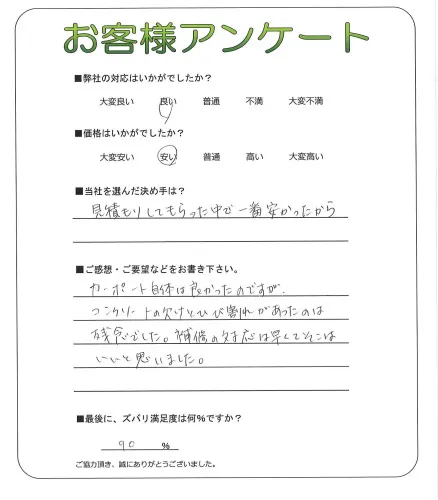 お客様アンケート
■弊社の対応はいかがでしたか？
大変良い 良い 普通 不満 大変不満
■価格はいかがでしたか？
大変安い 安い 普通 高い 大変高い
■当社を選んだ決め手は？
見積もりしてもらった中で一番安かったから
■ご感想・ご要望などをお書き下さい。
カーポート自体は良かったのですが、
コンクリートの欠けとひび割れがあったのは
残念でした。補修の対応は早くてそこは
いいと思いました。
■最後に、ズバリ満足度は何％ですか？
90 %
ご協力頂き、誠にありがとうございました。